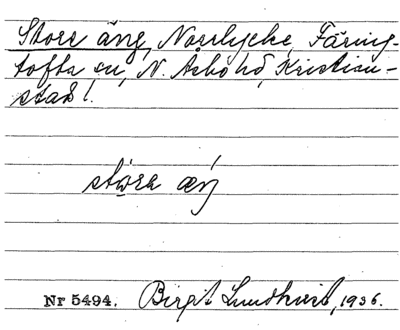 Store äng, Norrlycke, Färing-
tofta sn, N. Åsbo hd, Kristian-
stad l.
störa æŋ
Nr 5494. Birgit Lundkvist, 1936.